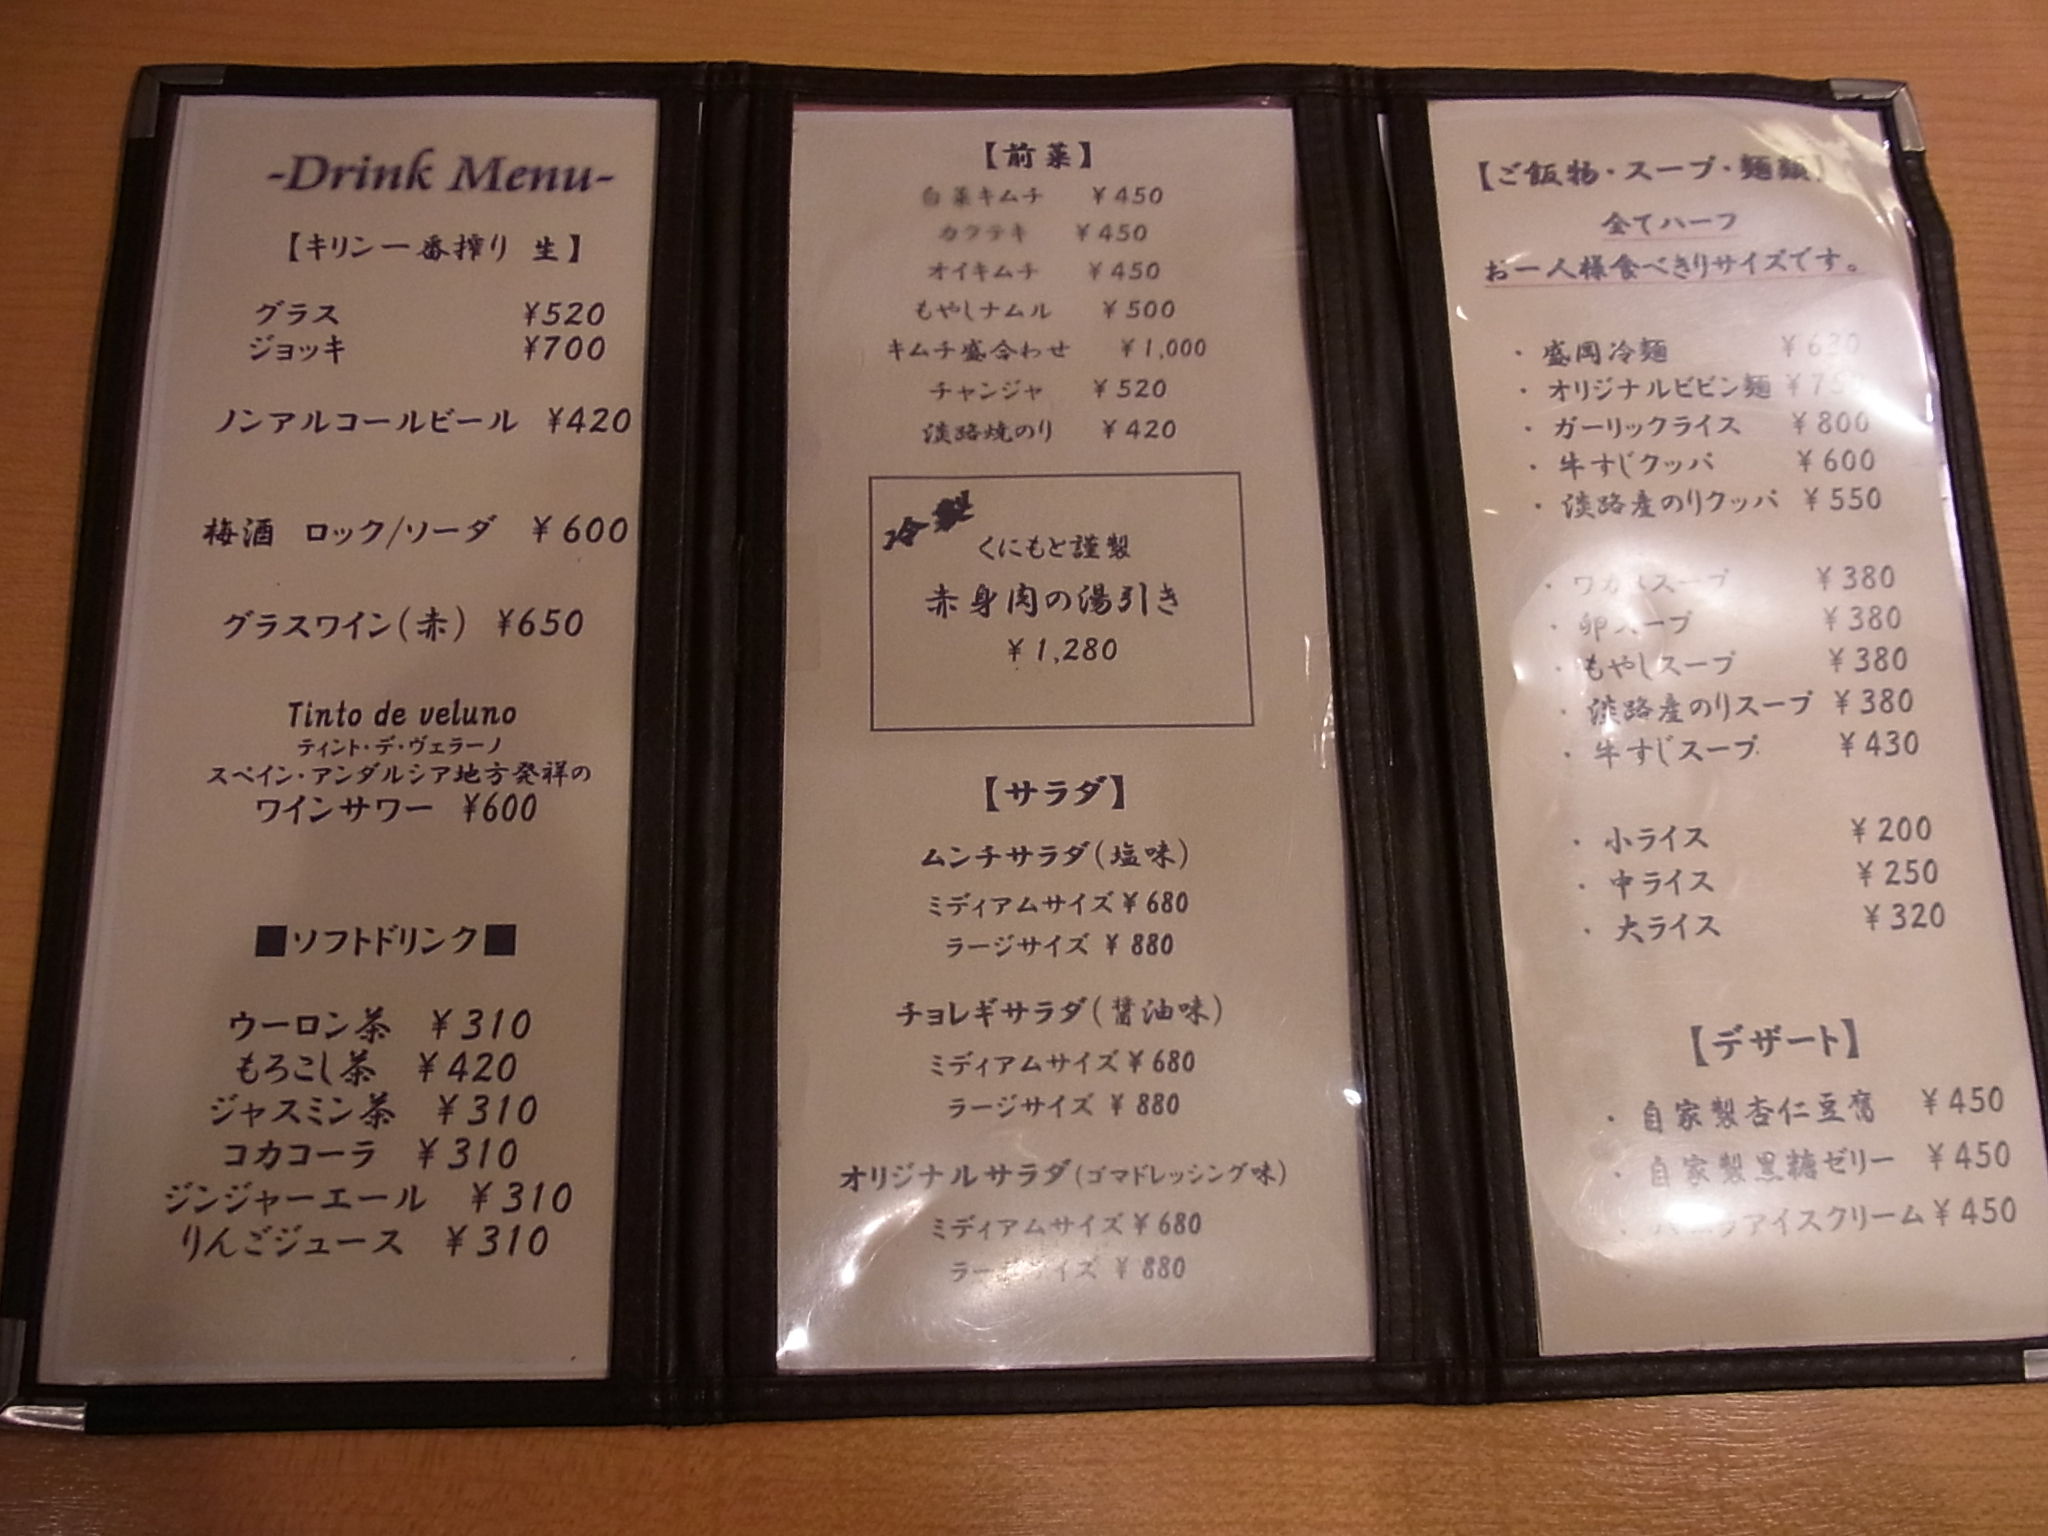 -Drink Menu-
【キリン一番搾り 生】
グラス ¥520
ジョッキ ¥700
ノンアルコールビール ¥420
梅酒 ロック/ソーダ ¥600
グラスワイン(赤) ¥650
Tinto de veluno
ティント・デ・ヴェラーノ
スペイン・アンダルシア地方発祥の
ワインサワー ¥600
■ソフトドリンク■
ウーロン茶 ¥310
もろこし茶 ¥420
ジャスミン茶 ¥310
コカコーラ ¥310
ジンジャーエール ¥310
りんごジュース ¥310
【前菜】
白菜キムチ ¥450
カクテキ ¥450
オイキムチ ¥450
もやしナムル ¥500
キムチ盛合わせ ¥1,000
チャンジャ ¥520
淡路焼のり ¥420
冷製
くにもと謹製
赤身肉の湯引き
¥1,280
【サラダ】
ムンチサラダ(塩味)
ミディアムサイズ¥680
ラージサイズ ¥880
チョレギサラダ(醤油味)
ミディアムサイズ¥680
ラージサイズ ¥880
オリジナルサラダ(ゴマドレッシング味)
ミディアムサイズ¥680
ラージサイズ ¥880
【ご飯物・スープ・麺類】
全てハーフ
お一人様食べきりサイズです。
・盛岡冷麺 ¥630
・オリジナルビビン麺
・ガーリックライス ¥800
・牛すじクッパ ¥600
・淡路産のりクッパ ¥550
・ワカメスープ ¥380
・卵スープ ¥380
・もやしスープ ¥380
・淡路産のりスープ ¥380
・牛すじスープ ¥430
・小ライス ¥200
・中ライス ¥250
・大ライス ¥320
【デザート】
・自家製杏仁豆腐 ¥450
・自家製黒糖ゼリー ¥450
・バニラアイスクリーム¥450